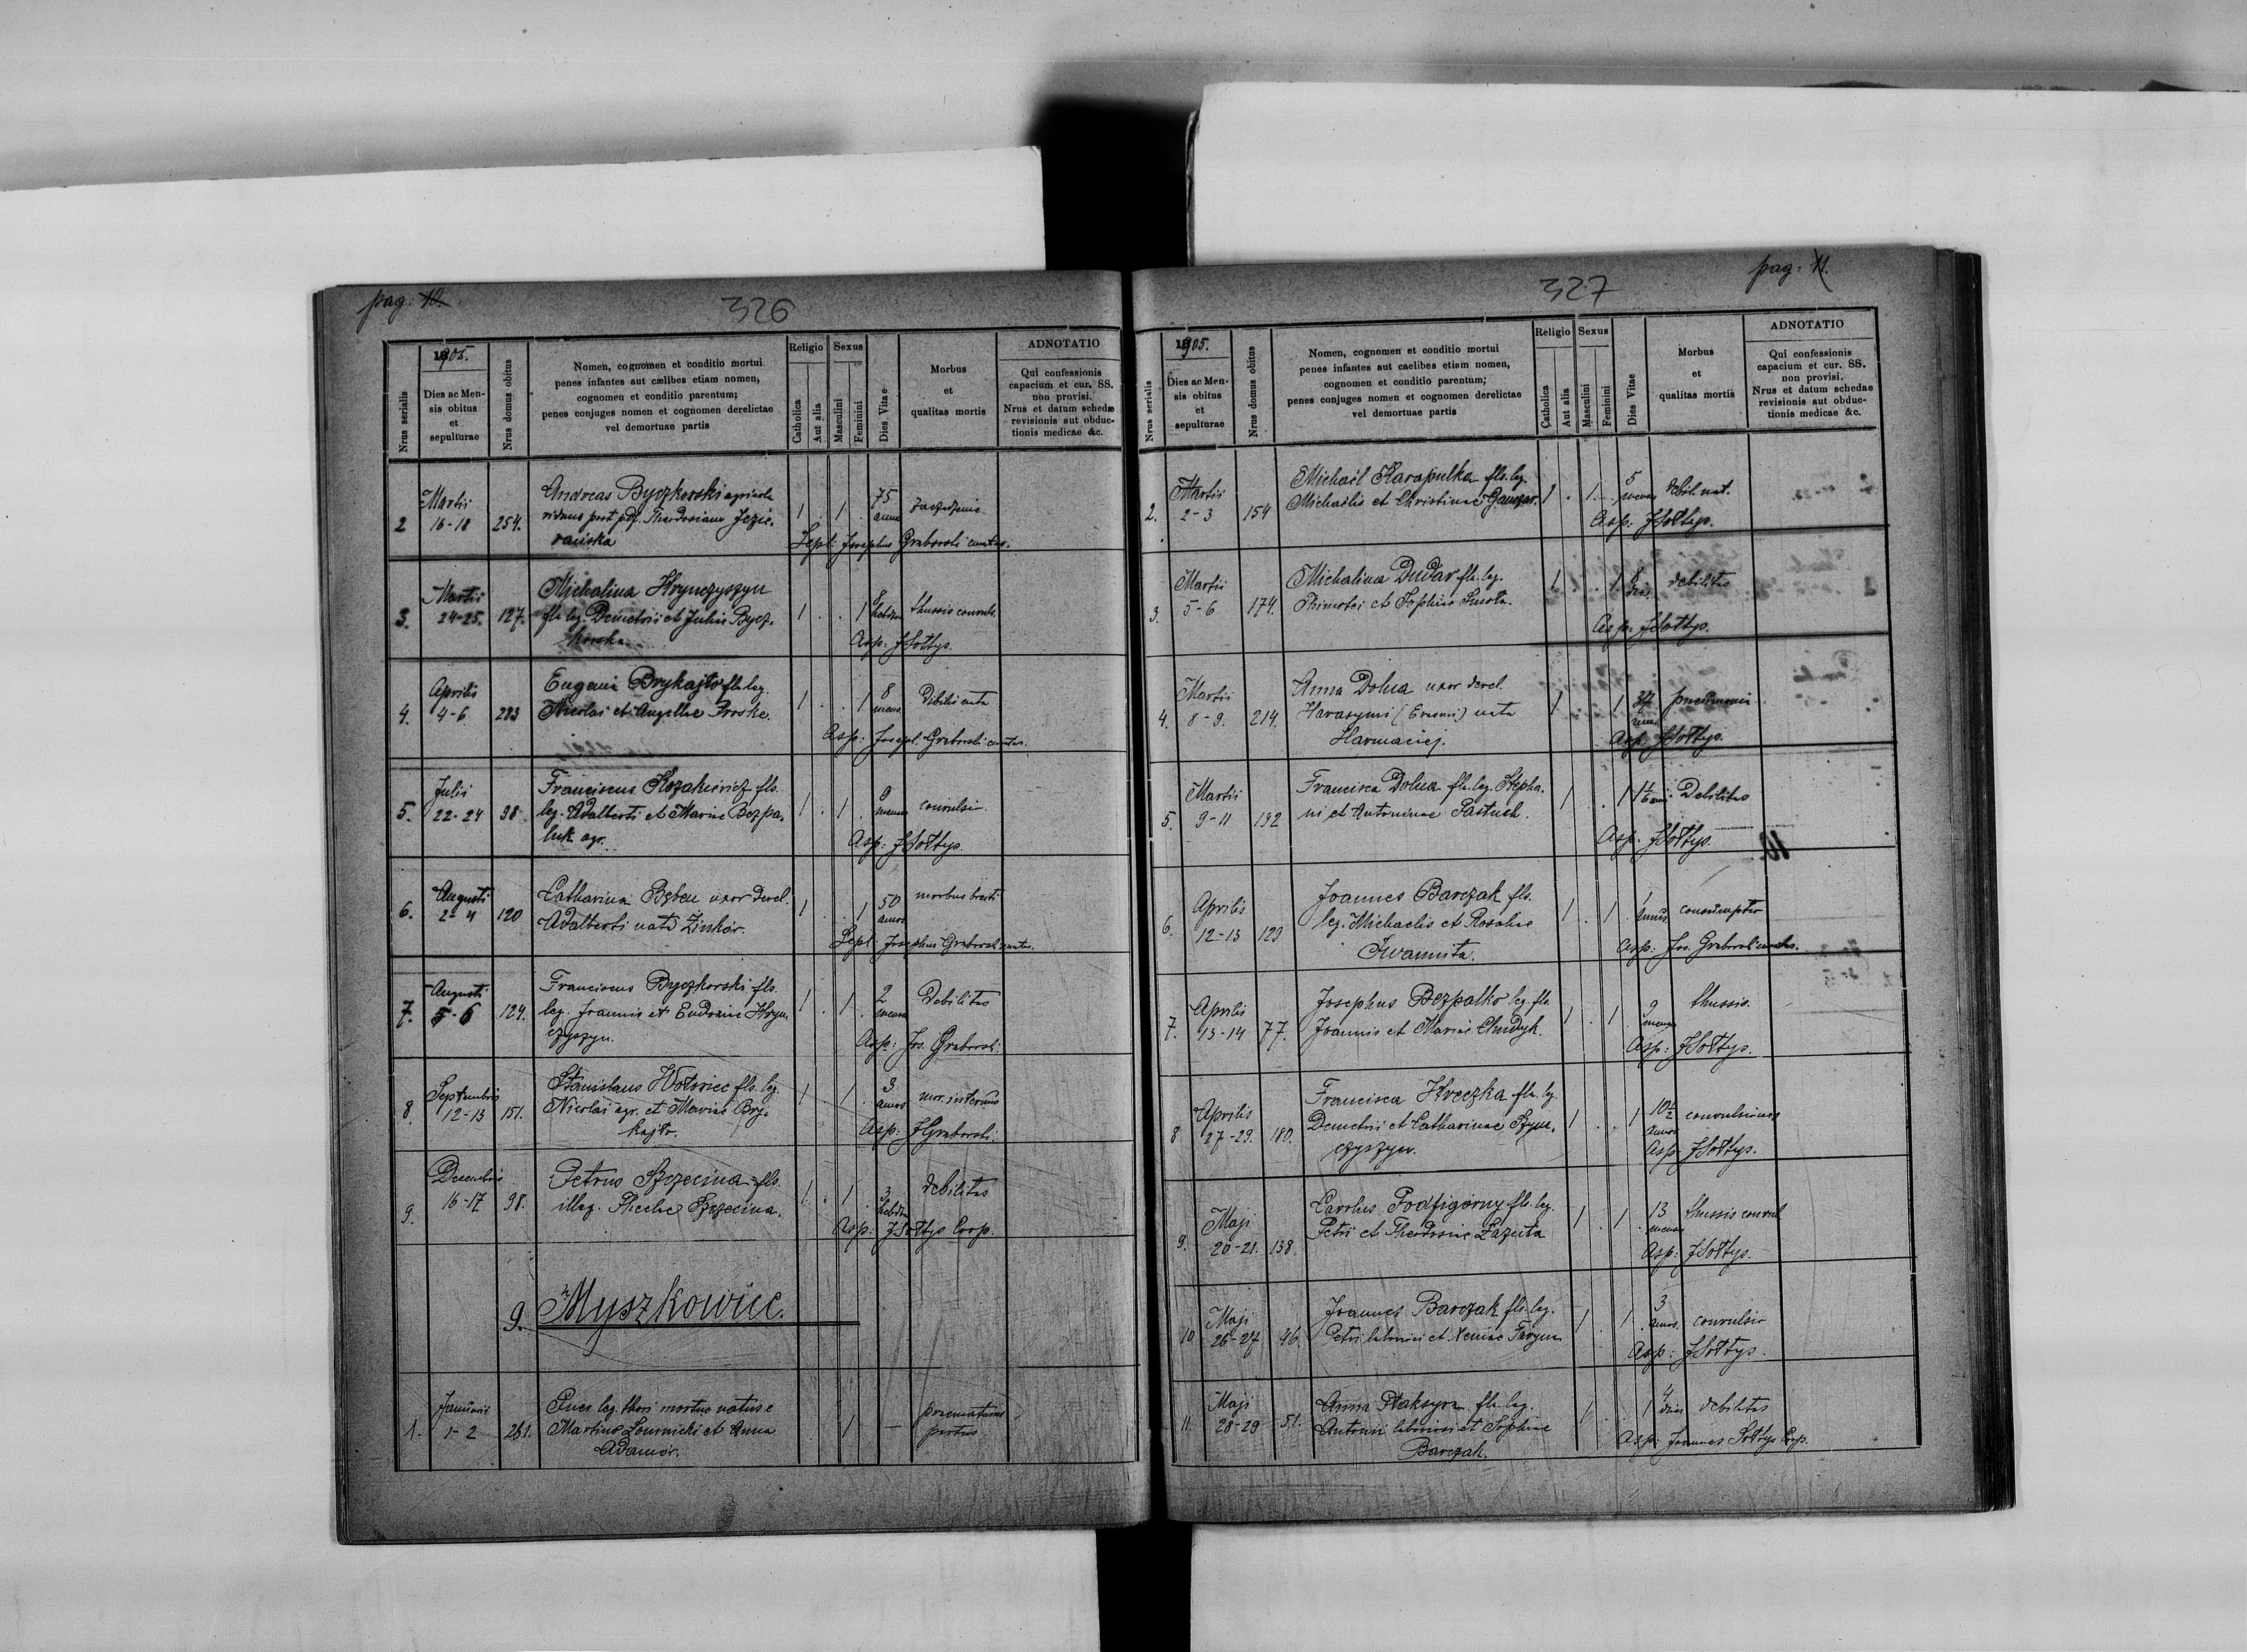 pag: 10.
326
1905.
Nrus serialis
Dies ac Men-
sis obitus
et
sepulturae
Nrus domus obitus
Nomen, cognomen et conditio mortui
penes infantes aut cælibes etiam nomen,
cognomen et conditio parentum;
penes conjuges nomen et cognomen derelictae
vel demortuae partis
Religio
Catholica
Aut alia
Sexus
Masculini
Feminini
Dies Vitae
Morbus
et
qualitas mortis
ADNOTATIO
Qui confessionis
capacium et cur. SS.
non provisi.
Nrus et datum schedæ
revisionis aut obduc-
tionis medicae &c.
2 Martii 16-18 254. Andreas Byczkorski agricola 1 . 1 . 75
viduus post pdf. Theodosiam Jezie-
rańska
Sepl: Josephus Graborski curatus.
3. Martii 24-25. 127. Michalina Hrynczyszyn 1 . . 1 8 hebdom thussis convuls.
fla leg. Demetrii et Juliae Bycz-
korska
Asp: JSołtys.
4. Aprilis 4-6 283 Eugenia Brykajło fla leg. 1 . . 1 8 mens Debilis nata
Nicolai et Angellae Proske.
Asp: Joseph Graborski curatus.
5. Julii 22-24 98. Franciscus Kozakiewicz fls. 1 . 1 . 9 menses convulsio.
leg. Adalberti et Mariae Bezpa-
luk agr.
Asp: JSołtys.
6. Augusti 2-4 120 Catharina Bęben uxor derel. 1 . . 1 50 annos morbus
Adalberti nata Zinkór.
Sepl: Josephus Graborski curatus.
7. Augusti 5-6 124. Franciscus Byczkorski fls. 1 . 1 . 2 menses Debilitas
leg. Joannis et Eudoxiae Hryn-
czyszyn.
Asp: Jos. Graborski.
8. Septembris 12-13 151. Stanislaus Wołoviec fls. leg. 1 1 . 3 annos mor. internus
Nicolai agr. et Mariae Bry-
kajło.
Asp: JGraborski.
9. Decembris 16-17 98. Petrus Szczecina fls. 1 . 1 3 hebdom debilitas
illeg. Theclae Szczecina.
Asp: JSołtys Coop.
9. Myszkowice.
1. Januarii 1-2 261. Puer leg. thori mortuo natus e 1 — praematurus
Martino Łoumicki et Anna partus
Adamór.
pag: 11.
327
1905.
Nrus serialis
Dies ac Men-
sis obitus
et
sepulturae
Nrus domus obitus
Nomen, cognomen et conditio mortui
penes infantes aut caelibes etiam nomen,
cognomen et conditio parentum;
penes conjuges nomen et cognomen derelictae
vel demortuae partis
Religio
Catholica
Aut alia
Sexus
Masculini
Feminini
Dies Vitae
Morbus
et
qualitas mortis
ADNOTATIO
Qui confessionis
capacium et cur. SS.
non provisi.
Nrus et datum schedae
revisionis aut obduc-
tionis medicae &c.
2. Martii 2-3 154 Michaël Karapulka fls. leg. 1 . 1 . 5 menses debil. nat.
Michaëlis et Christinae Ganczar.
Asp: JSołtys.
3. Martii 5-6 174. Michalina Dudar fla. leg. 1 . . 1 8 dies debilitas
Thimotei et Sophiae Smola.
Asp: JSołtys.
4. Martii 8-9. 214. Anna Dolna uxor derel. 1 . 1 34 annos pneumonia
Harasymi (Erasmi) nata
Harmaciej.
Asp: JSołtys.
5. Martii 9-11 192 Francisca Dolna fla. leg. Stepha- 1 . . 1 Debilitas
ni et Antoninae Pastuch.
Asp: JSołtys.
6. Aprilis 12-13 129 Joannes Barczak fls. 1 . 1 . 1 annus consumptio
leg. Michaelis et Rosaliae
Iwannita.
Asp: Jos. Graborski curatus.
7. Aprilis 13-14 77. Josephus Bezpałko leg. fls. 1 . 1 . 9 menses thussis.
Joannis et Mariae Chudyk.
Asp: JSołtys.
8 Aprilis 27-29. 180. Francisca Hreczka fla. leg. 1 . . 1 10½ annos convulsiones
Demetrii et Catharinae Szym-
czyszyn.
Asp: JSołtys.
9. Maji 20-21. 138. Carolus Podfigórny fls. leg. 1 . 1 . 13 menses thussis convul
Petri et Theodosiae Łazuta
Asp: JSołtys.
10 Maji 26-27 96. Joannes Barczak fls. leg. 1 . 1 . 3 annos. convulsio
Petri laboriosi et Xeniae Faryna
Asp: JSołtys.
11. Maji 28-29 51. Anna Płaksyra fla. leg. 1 . 1 4 dies debilitas
Antonii laboriosi et Sophiae
Barczak.
Asp: Joannes Sołtys Coop.